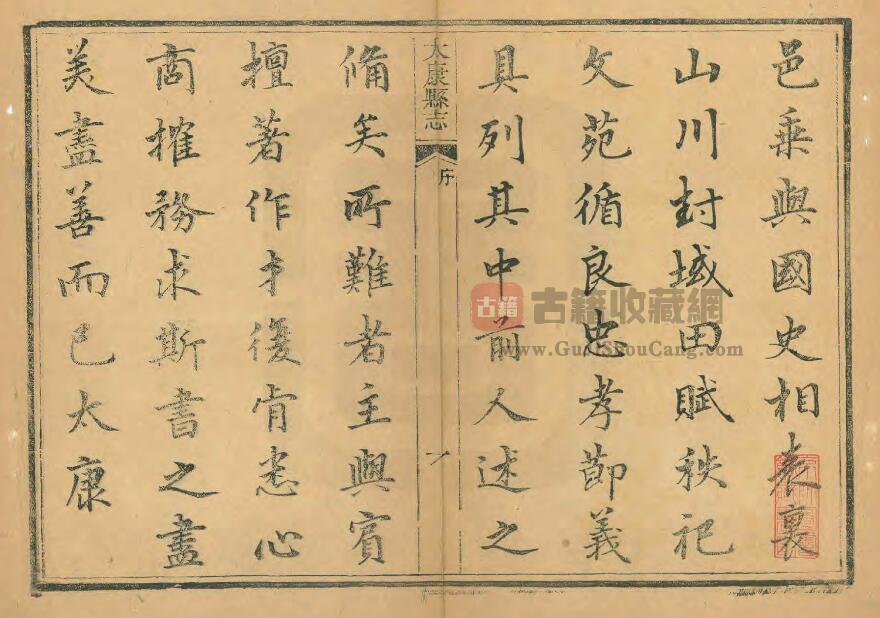 邑乘與國史相表裏
山川封域田賦秩祀
文苑循良忠孝節義
具列其中前人述之
太康縣志
序
一
備矣所難者主與賓
擅著作才復肯悉心
商搉務求斯書之盡
美盡善而已太康
古籍
古籍收藏網
www.GuJiShouCang.com